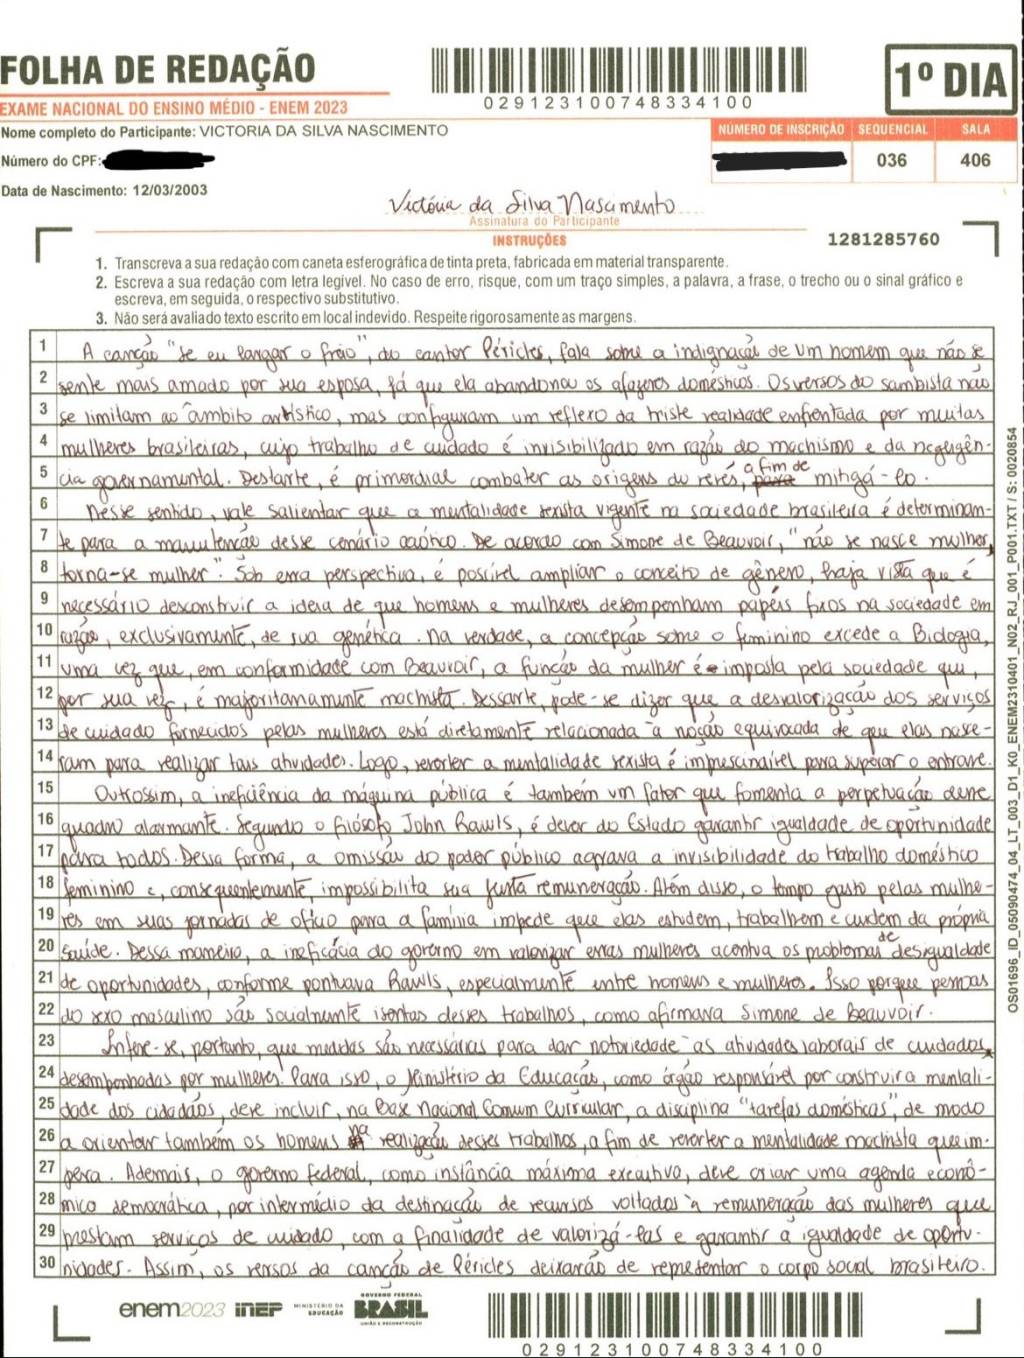 FOLHA DE REDAÇÃO
029123100748334100
1º DIA
EXAME NACIONAL DO ENSINO MÉDIO - ENEM 2023
Nome completo do Participante: VICTORIA DA SILVA NASCIMENTO
NÚMERO DE INSCRIÇÃO SEQUENCIAL SALA
Número do CPF:
036 406
Data de Nascimento: 12/03/2003
Victória da Silva Nascimento
Assinatura do Participante
INSTRUÇÕES
1281285760
1. Transcreva a sua redação com caneta esferográfica de tinta preta, fabricada em material transparente.
2. Escreva a sua redação com letra legível. No caso de erro, risque, com um traço simples, a palavra, a frase, o trecho ou o sinal gráfico e
escreva, em seguida, o respectivo substitutivo.
3. Não será avaliado texto escrito em local indevido. Respeite rigorosamente as margens.
1 A canção "Se eu largar o freio", do cantor Péricles, fala sobre a indignação de um homem que não se
2 sente mais amado por sua esposa, já que ela abandonou os afazeres domésticos. Os versos do sambista não
3 se limitam ao âmbito artístico, mas configuram um reflexo da triste realidade enfrentada por muitas
4 mulheres brasileiras, cujo trabalho de cuidado é invisibilizado em razão do machismo e da negligên-
5 cia governamental. Destarte, é primordial combater as origens do revés, para a fim de mitigá-lo.
6 Nesse sentido, vale salientar que a mentalidade sexista vigente na sociedade brasileira é determinan-
7 te para a manutenção desse cenário caótico. De acordo com Simone de Beauvoir, "não se nasce mulher,
8 torna-se mulher". Sob essa perspectiva, é possível ampliar o conceito de gênero, haja vista que é
9 necessário desconstruir a ideia de que homens e mulheres desempenham papéis fixos na sociedade em
10 razão, exclusivamente, de sua genética. Na verdade, a concepção sobre o feminino excede a Biologia,
11 uma vez que, em conformidade com Beauvoir, a função da mulher é imposta pela sociedade que,
12 por sua vez, é majoritariamente machista. Dessarte, pode-se dizer que a desvalorização dos serviços
13 de cuidado fornecidos pelas mulheres está diretamente relacionada à noção equivocada de que elas nasce-
14 ram para realizar tais atividades. Logo, reverter a mentalidade sexista é imprescindível para superar o entrave.
15 Outrossim, a ineficiência da máquina pública é também um fator que fomenta a perpetuação desse
16 quadro alarmante. Segundo o filósofo John Rawls, é dever do Estado garantir igualdade de oportunidade
17 para todos. Dessa forma, a omissão do poder público agrava a invisibilidade do trabalho doméstico
18 feminino e, consequentemente, impossibilita sua justa remuneração. Além disso, o tempo gasto pelas mulhe-
19 res em suas jornadas de ofício para a família impede que elas estudem, trabalhem e cuidem da própria
20 saúde. Dessa maneira, a ineficácia do governo em valorizar essas mulheres acentua os problemas de desigualdade
21 de oportunidades, conforme pontuava Rawls, especialmente entre homens e mulheres. Isso porque pessoas
22 do sexo masculino são socialmente isentas desses trabalhos, como afirmava Simone de Beauvoir.
23 Infere-se, portanto, que medidas são necessárias para dar notoriedade às atividades laborais de cuidados
24 desempenhadas por mulheres. Para isso, o Ministério da Educação, como órgão responsável por construir a mentali-
25 dade dos cidadãos, deve incluir, na Base Nacional Comum Curricular, a disciplina "tarefas domésticas", de modo
26 a orientar também os homens na realização desses trabalhos, a fim de reverter a mentalidade machista que im-
27 pera. Ademais, o governo federal, como instância máxima executiva, deve criar uma agenda econô-
28 mico democrática, por intermédio da destinação de recursos voltados à remuneração das mulheres que
29 prestam serviços de cuidado, com a finalidade de valorizá-las e garantir a igualdade de oportu-
30 nidades. Assim, os versos da canção de Péricles deixarão de representar o corpo social brasileiro.
OS01696_ID_05090474_04_LT_003_D1_K0_ENEM2310401_N02_RJ_001_P001.TXT / S: 0020854
enem2023 inep MINISTÉRIO DA EDUCAÇÃO GOVERNO FEDERAL BRASIL UNIÃO E RECONSTRUÇÃO
029123100748334100